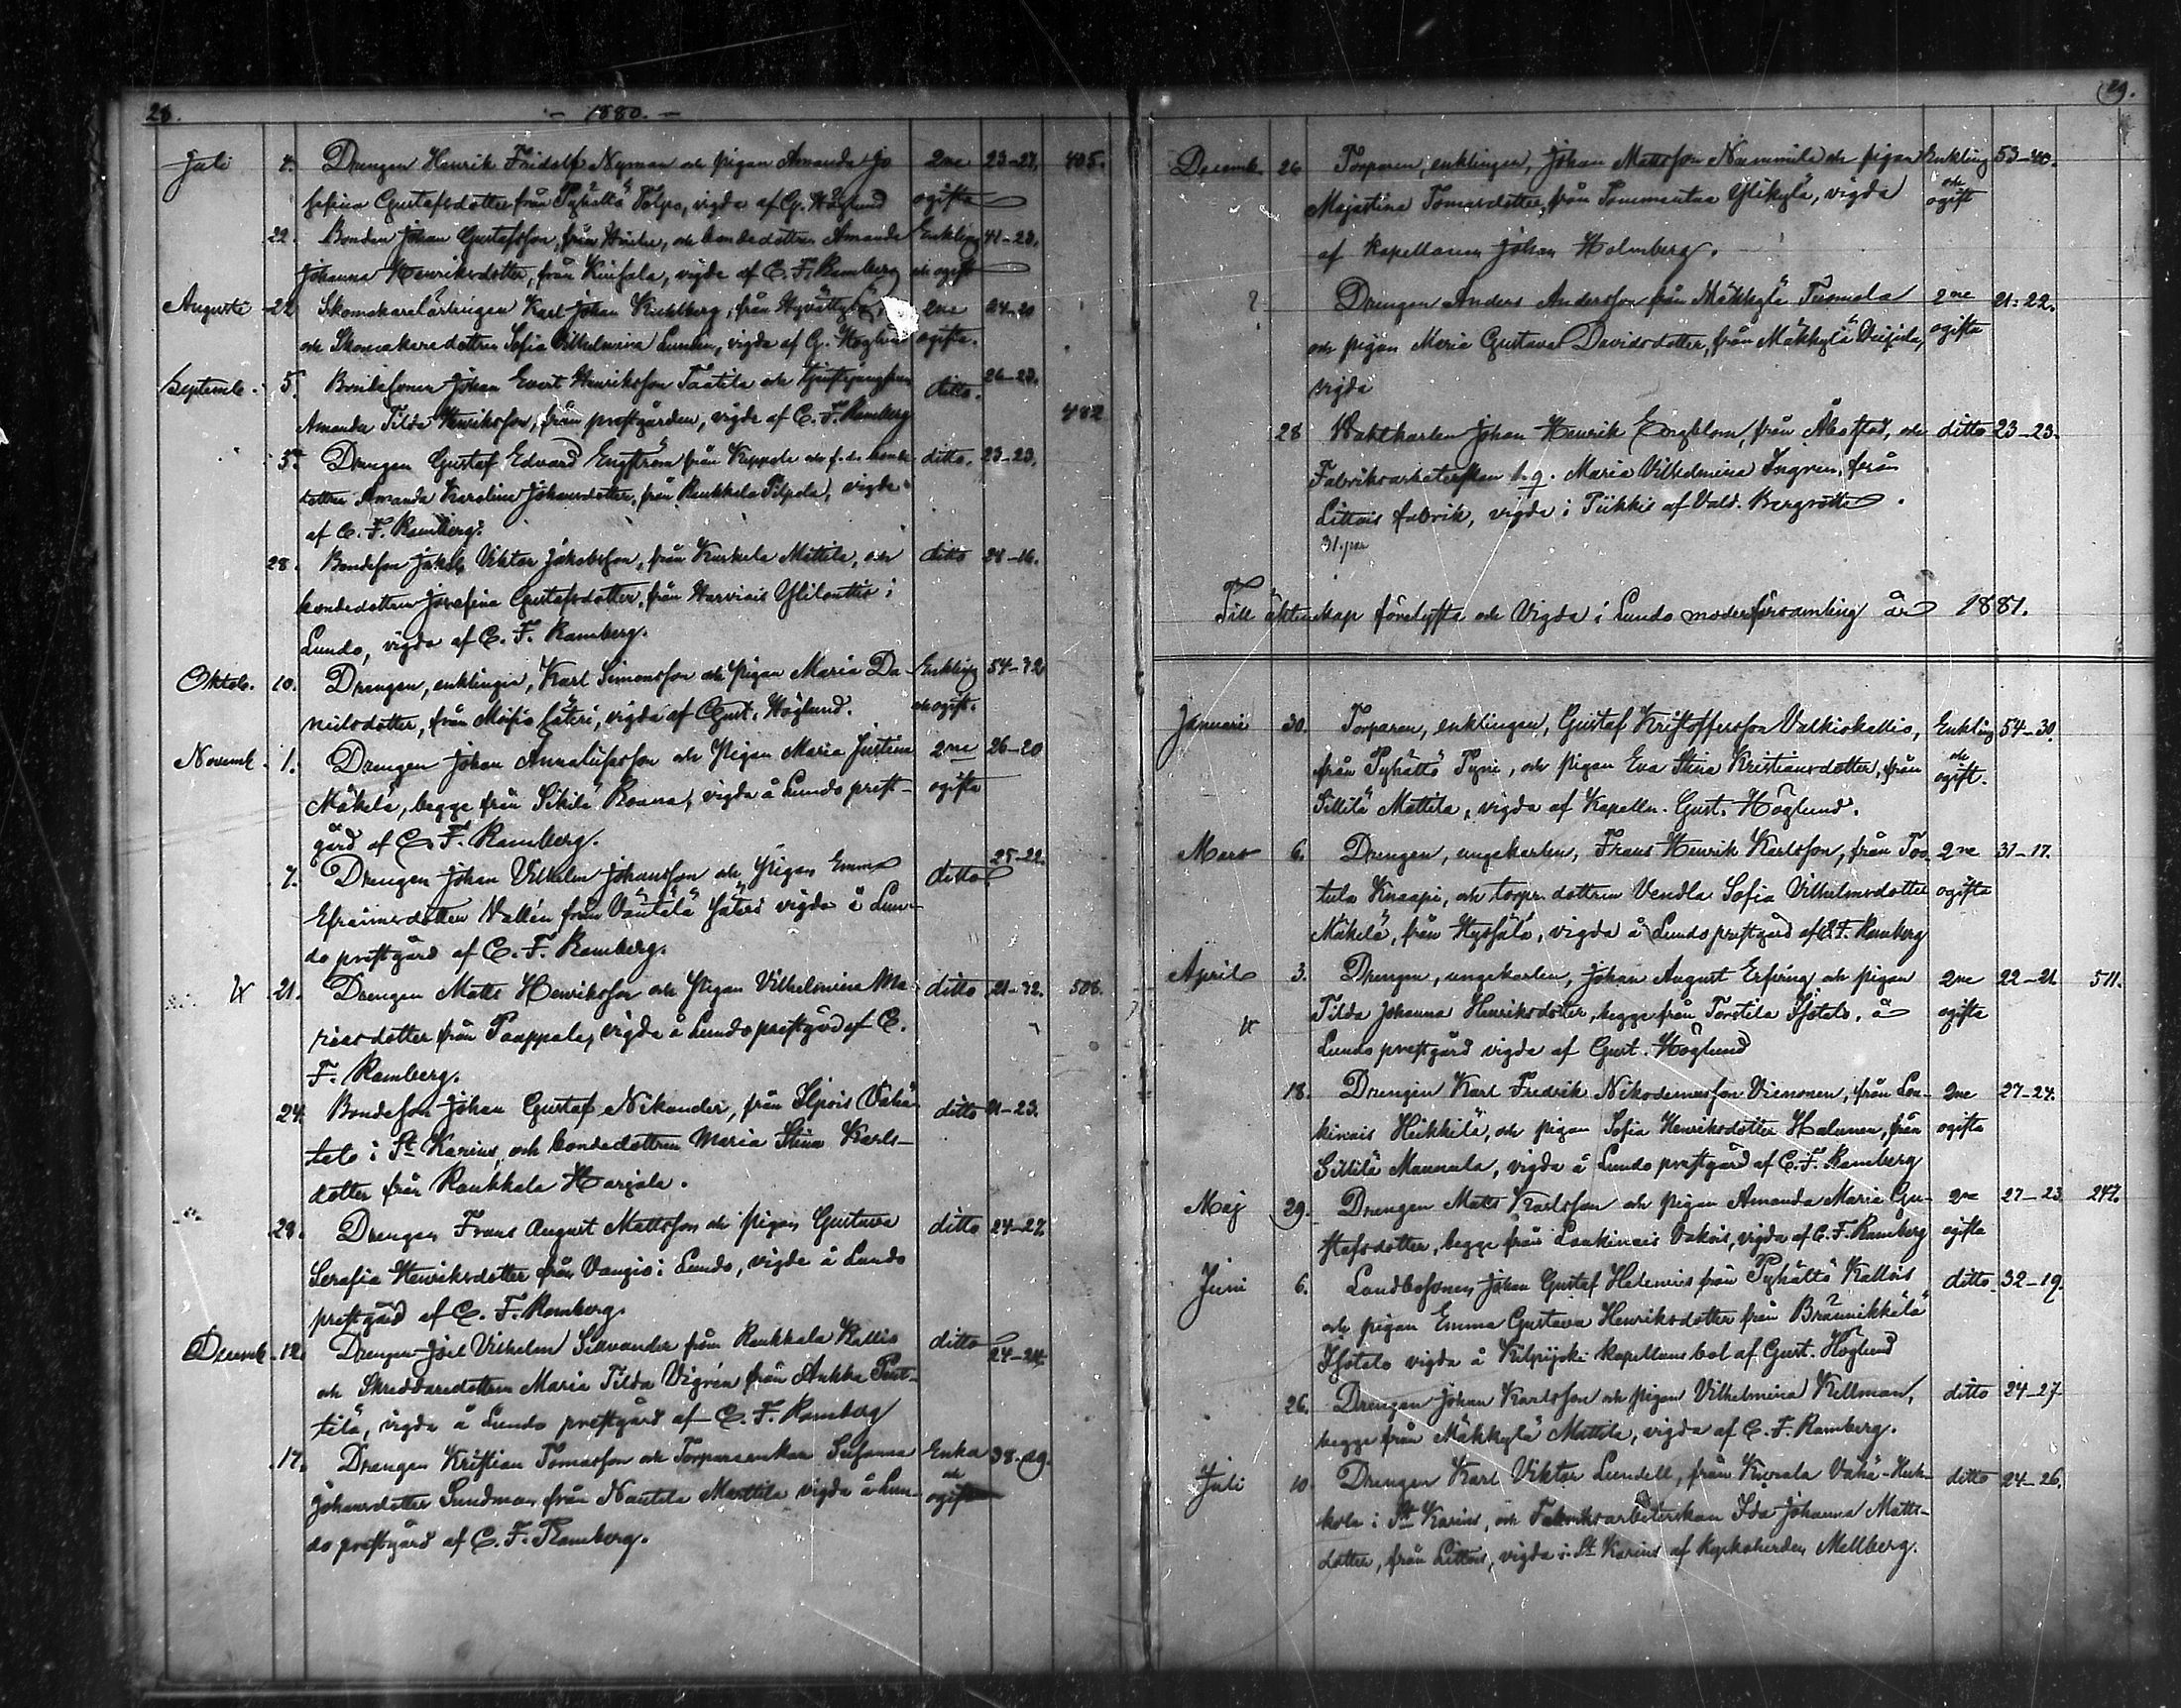 28.
- 1880. -
Juli 4. Drengen Henrik Fridolf Nyman och pigan Amanda Jo 2ne 23-27. 405.
sefina Gustafsdotter från Pyhältö Tolpo, vigda af G. Höglund ogifta
22. Bonden Johan Gustafsson, från och bondedottren Amanda Enkling 41-23.
Johanna Henriksdotter, från vigda af C. F. Ramberg och ogift
Augusti 22 Skomakarelärlingen Karl Johan från 2ne 24-20
och Skomakaredottren Sofia Vilhelmina Lundén, vigda af G. Höglund ogifta.
Septemb. 5. Bondesonen Johan Evert Henriksson Taatila och ditto. 26-23.
Amanda Tilda Henriksson, från prestgården, vigda af C. F. Ramberg 482
5. Drengen Gustaf Edvard Engström från och f. d. bonde ditto. 23-23.
dottren Amanda Karolina Johansdotter, från Raukkala Pilpola, vigda
af C. F. Ramberg.
28. Bondeson Jakob Viktor Jakobsson, från Kurkela Mattila, och ditto 28-16.
bondedottren Josefina Gustafsdotter, från Harviais Yliluttis i
Lundo, vigda af C. F. Ramberg.
Oktob. 10. Drengen, enklingen, Karl Simonsson och pigan Maria Da- Enkling 54-32
nielsdotter, från Moisio säteri, vigda af Gust. Höglund. och ogift.
Novemb. 1. Drengen Johan och Pigan Maria Justina 2ne 26-20
Mäkelä, begge från Sikilä vigda å Lundo prest- ogifta
gård af C. F. Ramberg.
7. Drengen Johan Vilhelm Johansson och Pigan Emma ditto 25-22.
Efraimsdotter Vallén från Väntälä säteri vigda å Lun-
do prestgård af C. F. Ramberg.
21. Drengen Matts Henriksson och Pigan Vilhelmina Ma- ditto 21-32. 508.
riasdotter från Paappala, vigda å Lundo prestgård af C.
F. Ramberg.
24. Bondeson Johan Gustaf Nikander, från Ilpois Vähä ditto 21-23.
talo i St Karins, och bondedottren Maria Stina Karls-
dotter från Raukkala Harjala.
28. Drengen Frans August Mattsson och Pigan Gustava ditto 24-27.
Serafia Henriksdotter från Vangio i Lundo, vigda å Lundo
prestgård af C. F. Ramberg.
Decemb. 12. Drengen Joel Vilhelm Silvander från Raukkala Kallio ditto 24-24.
och Skreddaredottren Maria Tilda Vigrén från Ankka Pert-
tilä, vigda å Lundo prestgård af C. F. Ramberg
17. Drengen Kristian Tomasson och Torparenkan Susanna Enka 38-29.
Johansdotter Sundman från Nautela Mattila vigda å Lun- och ogift
do prestgård af C. F. Ramberg.
29.
Decemb. 26 Torparen, enklingen, Johan Mattsson Nummila och pigan Enkling 53-40.
Majastina Tomasdotter, från Tommentaa Ylikylä, vigda och ogift
af kapellanen Johan Holmberg.
? Drengen Anders Andersson från Mäkkylä Tuomala 2ne 21-22.
och pigan Maria Gustava Davidsdotter, från Mäkkylä ogifta
vigda
28 Johan Henrik Engblom, från Åbo stad, och ditto 23-23.
Fabriksarbeterskan h. q. Maria Vilhelmina Ingren, från
Littois fabrik, vigda i Piikkis af Vald. Bergroth.
31. par
Till äktenskap förelysta och Vigda i Lundo moderförsamling år 1881.
Januari 30. Torparen, enklingen, Gustaf Kristoffersson Valkiakallio, Enkling 54-30.
från Pyhältö Pyni, och pigan Eva Stina Kristiansdotter, från och ogift.
Sillilä Mattila, vigda af Kapelln. Gust. Höglund.
Mars 6. Drengen, ungekarlen, Frans Henrik Karlsson, från Too 2ne 31-17.
tula Knaapi, och torpr. dottren Vendla Sofia Vilhelmsdotter ogifta
Mäkelä, från vigda å Lundo prestgård af C. F. Ramberg
April 3. Drengen, ungekarlen, Johan August Erfving och pigan 2ne 22-21 511.
Tilda Johanna Henriksdotter, begge från Torstila Isotalo, å ogifta
Lundo prestgård vigda af Gust. Höglund
18. Drengen Karl Fredrik Nikodemusson Vienonen, från Lou- 2ne 27-24.
kinais Heikkilä, och pigan Sofia Henriksdotter Halonen, från ogifta
Sillilä Mannula, vigda å Lundo prestgård af C. F. Ramberg
Maj 29. Drengen Mats Karlsson och pigan Amanda Maria Gu- 2ne 27-23 247.
stafsdotter, begge från Loukinais Vakois, vigda af C. F. Ramberg ogifta
Juni 6. Landbosonen Johan Gustaf Hedenius från Pyhältö Kallois ditto 32-19.
och pigan Emma Gustava Henriksdotter från Brännikkälä
Isotalo vigda å Kilpijoki kapellansbol af Gust. Höglund
26. Drengen Johan Karlsson och pigan Vilhelmina Kellman, ditto 24-27
begge från Mäkkylä Mattila, vigda af C. F. Ramberg.
Juli 10 Drengen Karl Viktor Lundell, från Vähä-Heik- ditto 24-26.
kola i St Karins, och Fabriksarbeterskan Ida Johanna Matts-
dotter, från Littois, vigda i St Karins af Kyrkoherden Mellberg.